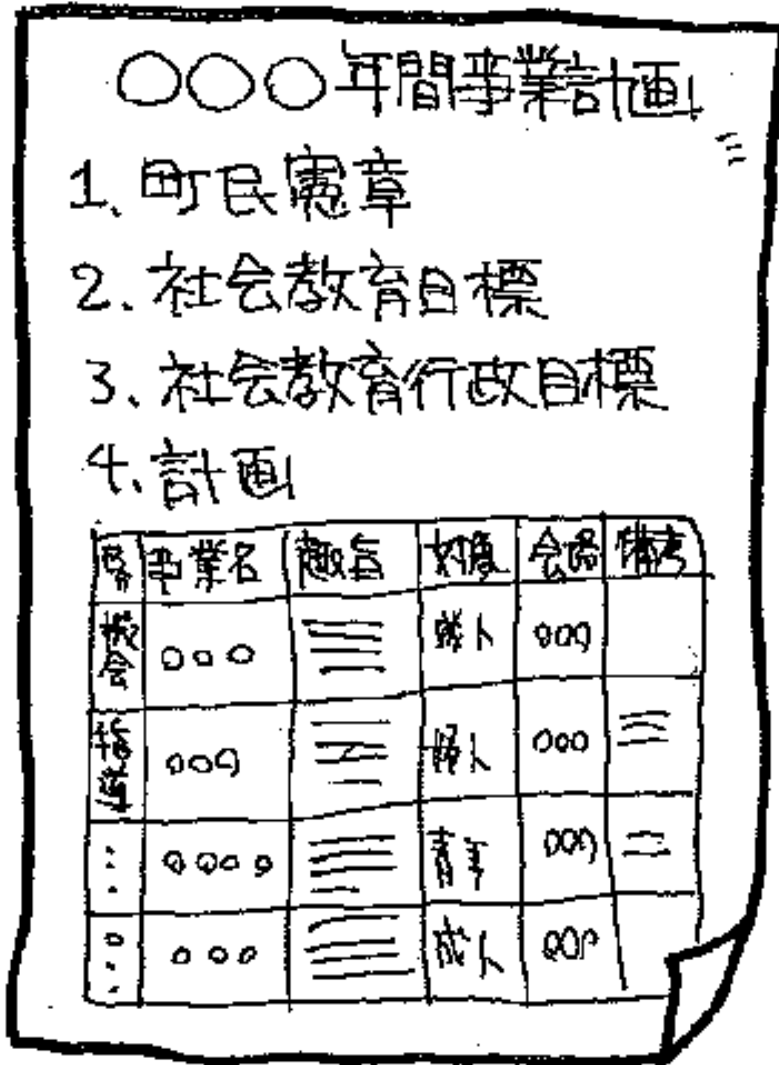 ○○○年間事業計画
1、町民憲章
2、社会教育目標
3、社会教育行政目標
4、計画
事業名 趣旨 対象 会場 備考
○○○ 成人 ○○○
○○○ 婦人 ○○○
○○○○ 青年 ○○○
○○○ 成人 ○○○